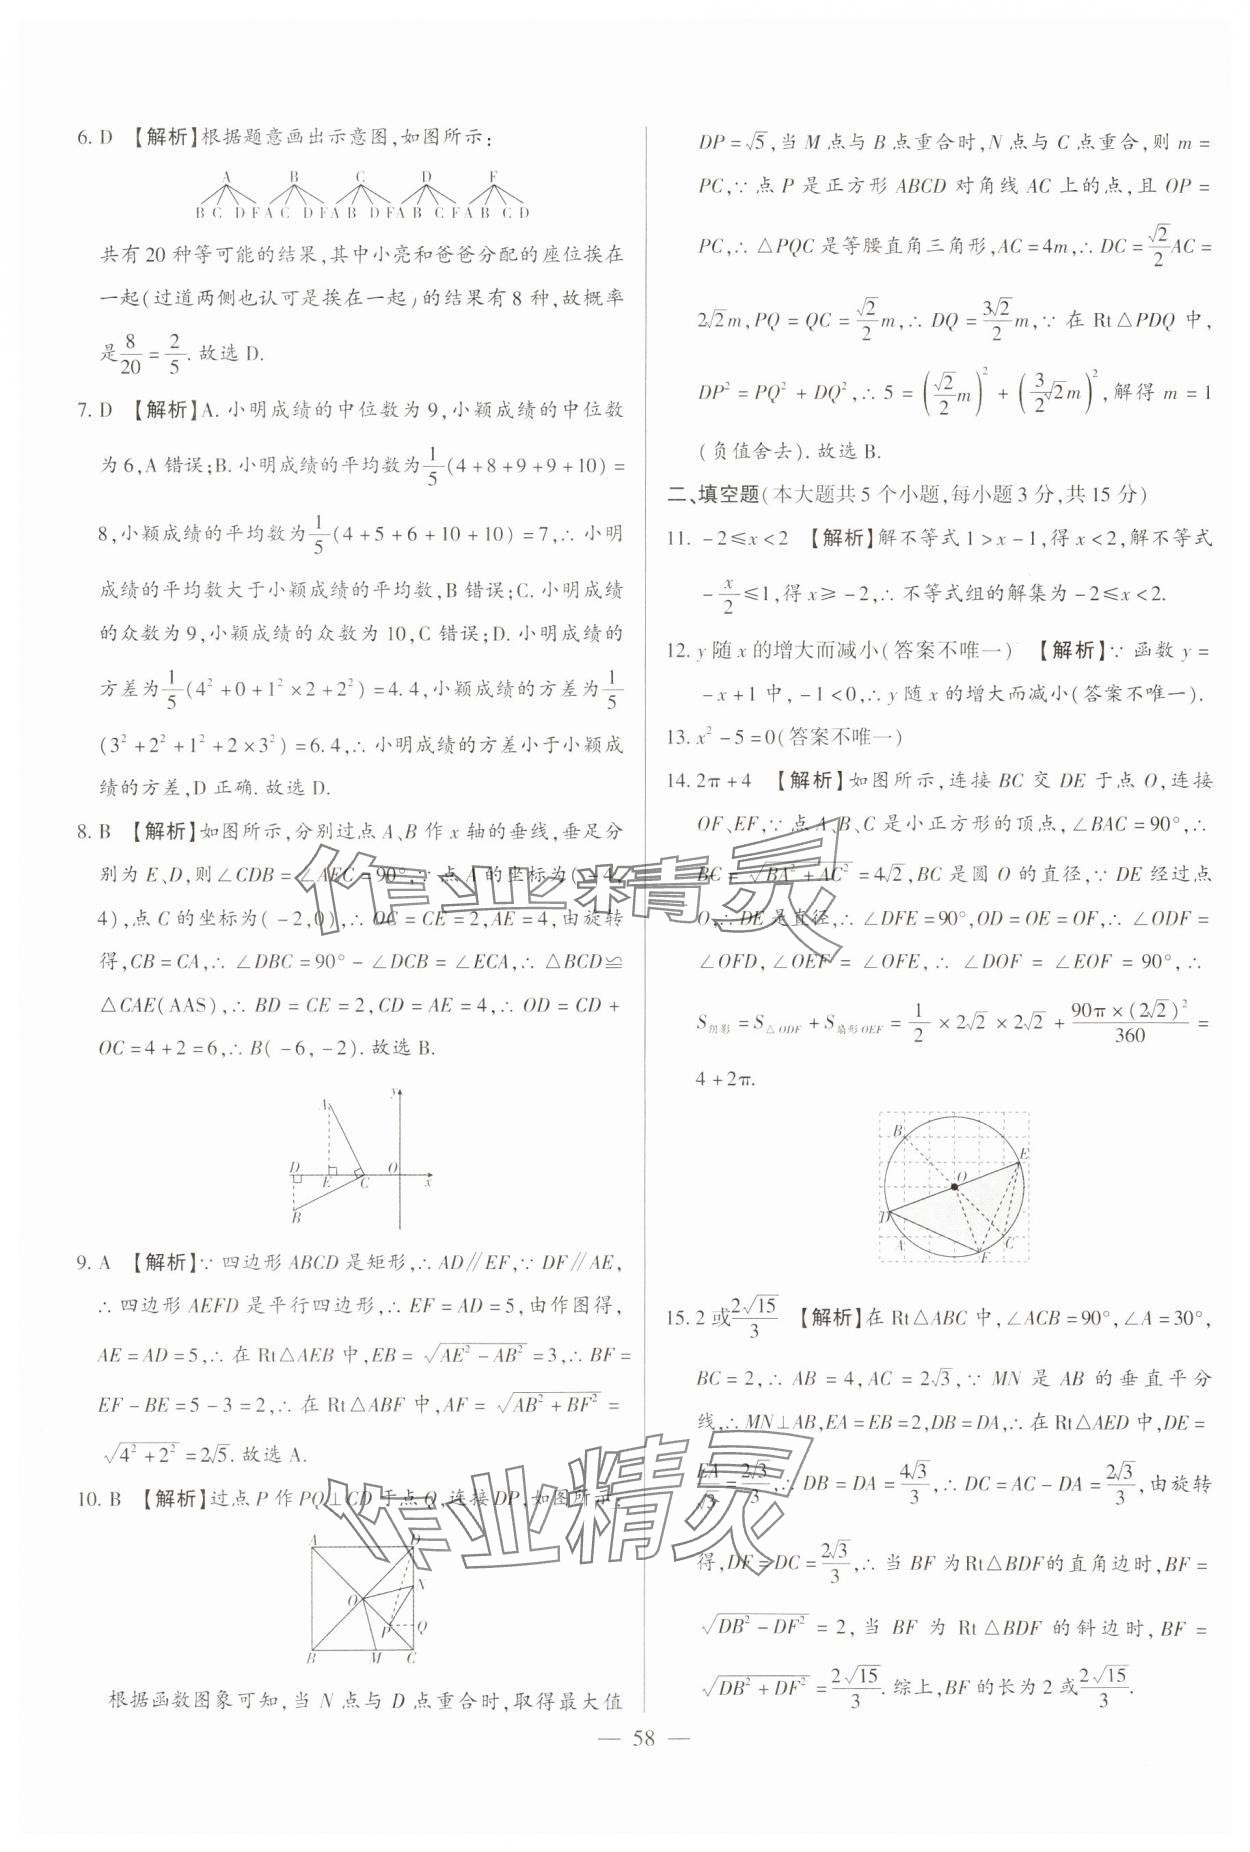 6. D 【解析】根据题意画出示意图,如图所示:
A B C D F
B C D F A C D F A B D F A B C F A B C D
共有20种等可能的结果,其中小亮和爸爸分配的座位挨在
一起(过道两侧也认可是挨在一起)的结果有8种,故概率
是8/20=2/5. 故选D.
7. D 【解析】A. 小明成绩的中位数为9,小颖成绩的中位数
为6,A错误;B. 小明成绩的平均数为1/5(4+8+9+9+10)=
8,小颖成绩的平均数为1/5(4+5+6+10+10)=7,∴小明
成绩的平均数大于小颖成绩的平均数,B错误;C. 小明成绩
的众数为9,小颖成绩的众数为10,C错误;D. 小明成绩的
方差为1/5(4²+0+1²×2+2²)=4.4,小颖成绩的方差为1/5
(3²+2²+1²+2×3²)=6.4,∴小明成绩的方差小于小颖成
绩的方差,D正确. 故选D.
8. B 【解析】如图所示,分别过点A、B作x轴的垂线,垂足分
别为E、D,则∠CDB=∠AEC=90°,∵点A的坐标为(-4,
4),点C的坐标为(-2,0),∴OC=CE=2,AE=4,由旋转
得,CB=CA,∴∠DBC=90°-∠DCB=∠ECA,∴△BCD≌
△CAE(AAS),∴BD=CE=2,CD=AE=4,∴OD=CD+
OC=4+2=6,∴B(-6,-2). 故选B.
y
A
D E C O x
B
9. A 【解析】∵四边形ABCD是矩形,∴AD∥EF,∵DF∥AE,
∴四边形AEFD是平行四边形,∴EF=AD=5,由作图得,
AE=AD=5,∴在Rt△AEB中,EB=√(AE²-AB²)=3,∴BF=
EF-BE=5-3=2,∴在Rt△ABF中,AF=√(AB²+BF²)=
√(4²+2²)=2√5. 故选A.
10. B 【解析】过点P作PQ⊥CD于点Q,连接DP,如图所示:
A D
N
O
P Q
B M C
根据函数图象可知,当N点与D点重合时,取得最大值
DP=√5,当M点与B点重合时,N点与C点重合,则m=
PC,∵点P是正方形ABCD对角线AC上的点,且OP=
PC,∴△PQC是等腰直角三角形,AC=4m,∴DC=√2/2AC=
2√2m,PQ=QC=√2/2m,∴DQ=3√2/2m,∵在Rt△PDQ中,
DP²=PQ²+DQ²,∴5=(√2/2m)²+(3/2√2m)²,解得m=1
(负值舍去). 故选B.
二、填空题(本大题共5个小题,每小题3分,共15分)
11. -2≤x<2 【解析】解不等式1>x-1,得x<2,解不等式
-x/2≤1,得x≥-2,∴不等式组的解集为-2≤x<2.
12. y随x的增大而减小(答案不唯一) 【解析】∵函数y=
-x+1中,-1<0,∴y随x的增大而减小(答案不唯一).
13. x²-5=0(答案不唯一)
14. 2π+4 【解析】如图所示,连接BC交DE于点O,连接
OF、EF,∵点A、B、C是小正方形的顶点,∠BAC=90°,∴
BC=√(BA²+AC²)=4√2,BC是圆O的直径,∵DE经过点
O,∴DE是直径,∴∠DFE=90°,OD=OE=OF,∴∠ODF=
∠OFD,∠OEF=∠OFE,∴∠DOF=∠EOF=90°,∴
S阴影=S△ODF+S扇形OEF=1/2×2√2×2√2+90π×(2√2)²/360=
4+2π.
B
E
O
D
A F C
15. 2或2√15/3 【解析】在Rt△ABC中,∠ACB=90°,∠A=30°,
BC=2,∴AB=4,AC=2√3,∵MN是AB的垂直平分
线,∴MN⊥AB,EA=EB=2,DB=DA,∴在Rt△AED中,DE=
EA/√3=2√3/3,∴DB=DA=4√3/3,∴DC=AC-DA=2√3/3,由旋转
得,DF=DC=2√3/3,∴当BF为Rt△BDF的直角边时,BF=
√(DB²-DF²)=2,当BF为Rt△BDF的斜边时,BF=
√(DB²+DF²)=2√15/3. 综上,BF的长为2或2√15/3.
— 58 —
作业精灵
作业精灵